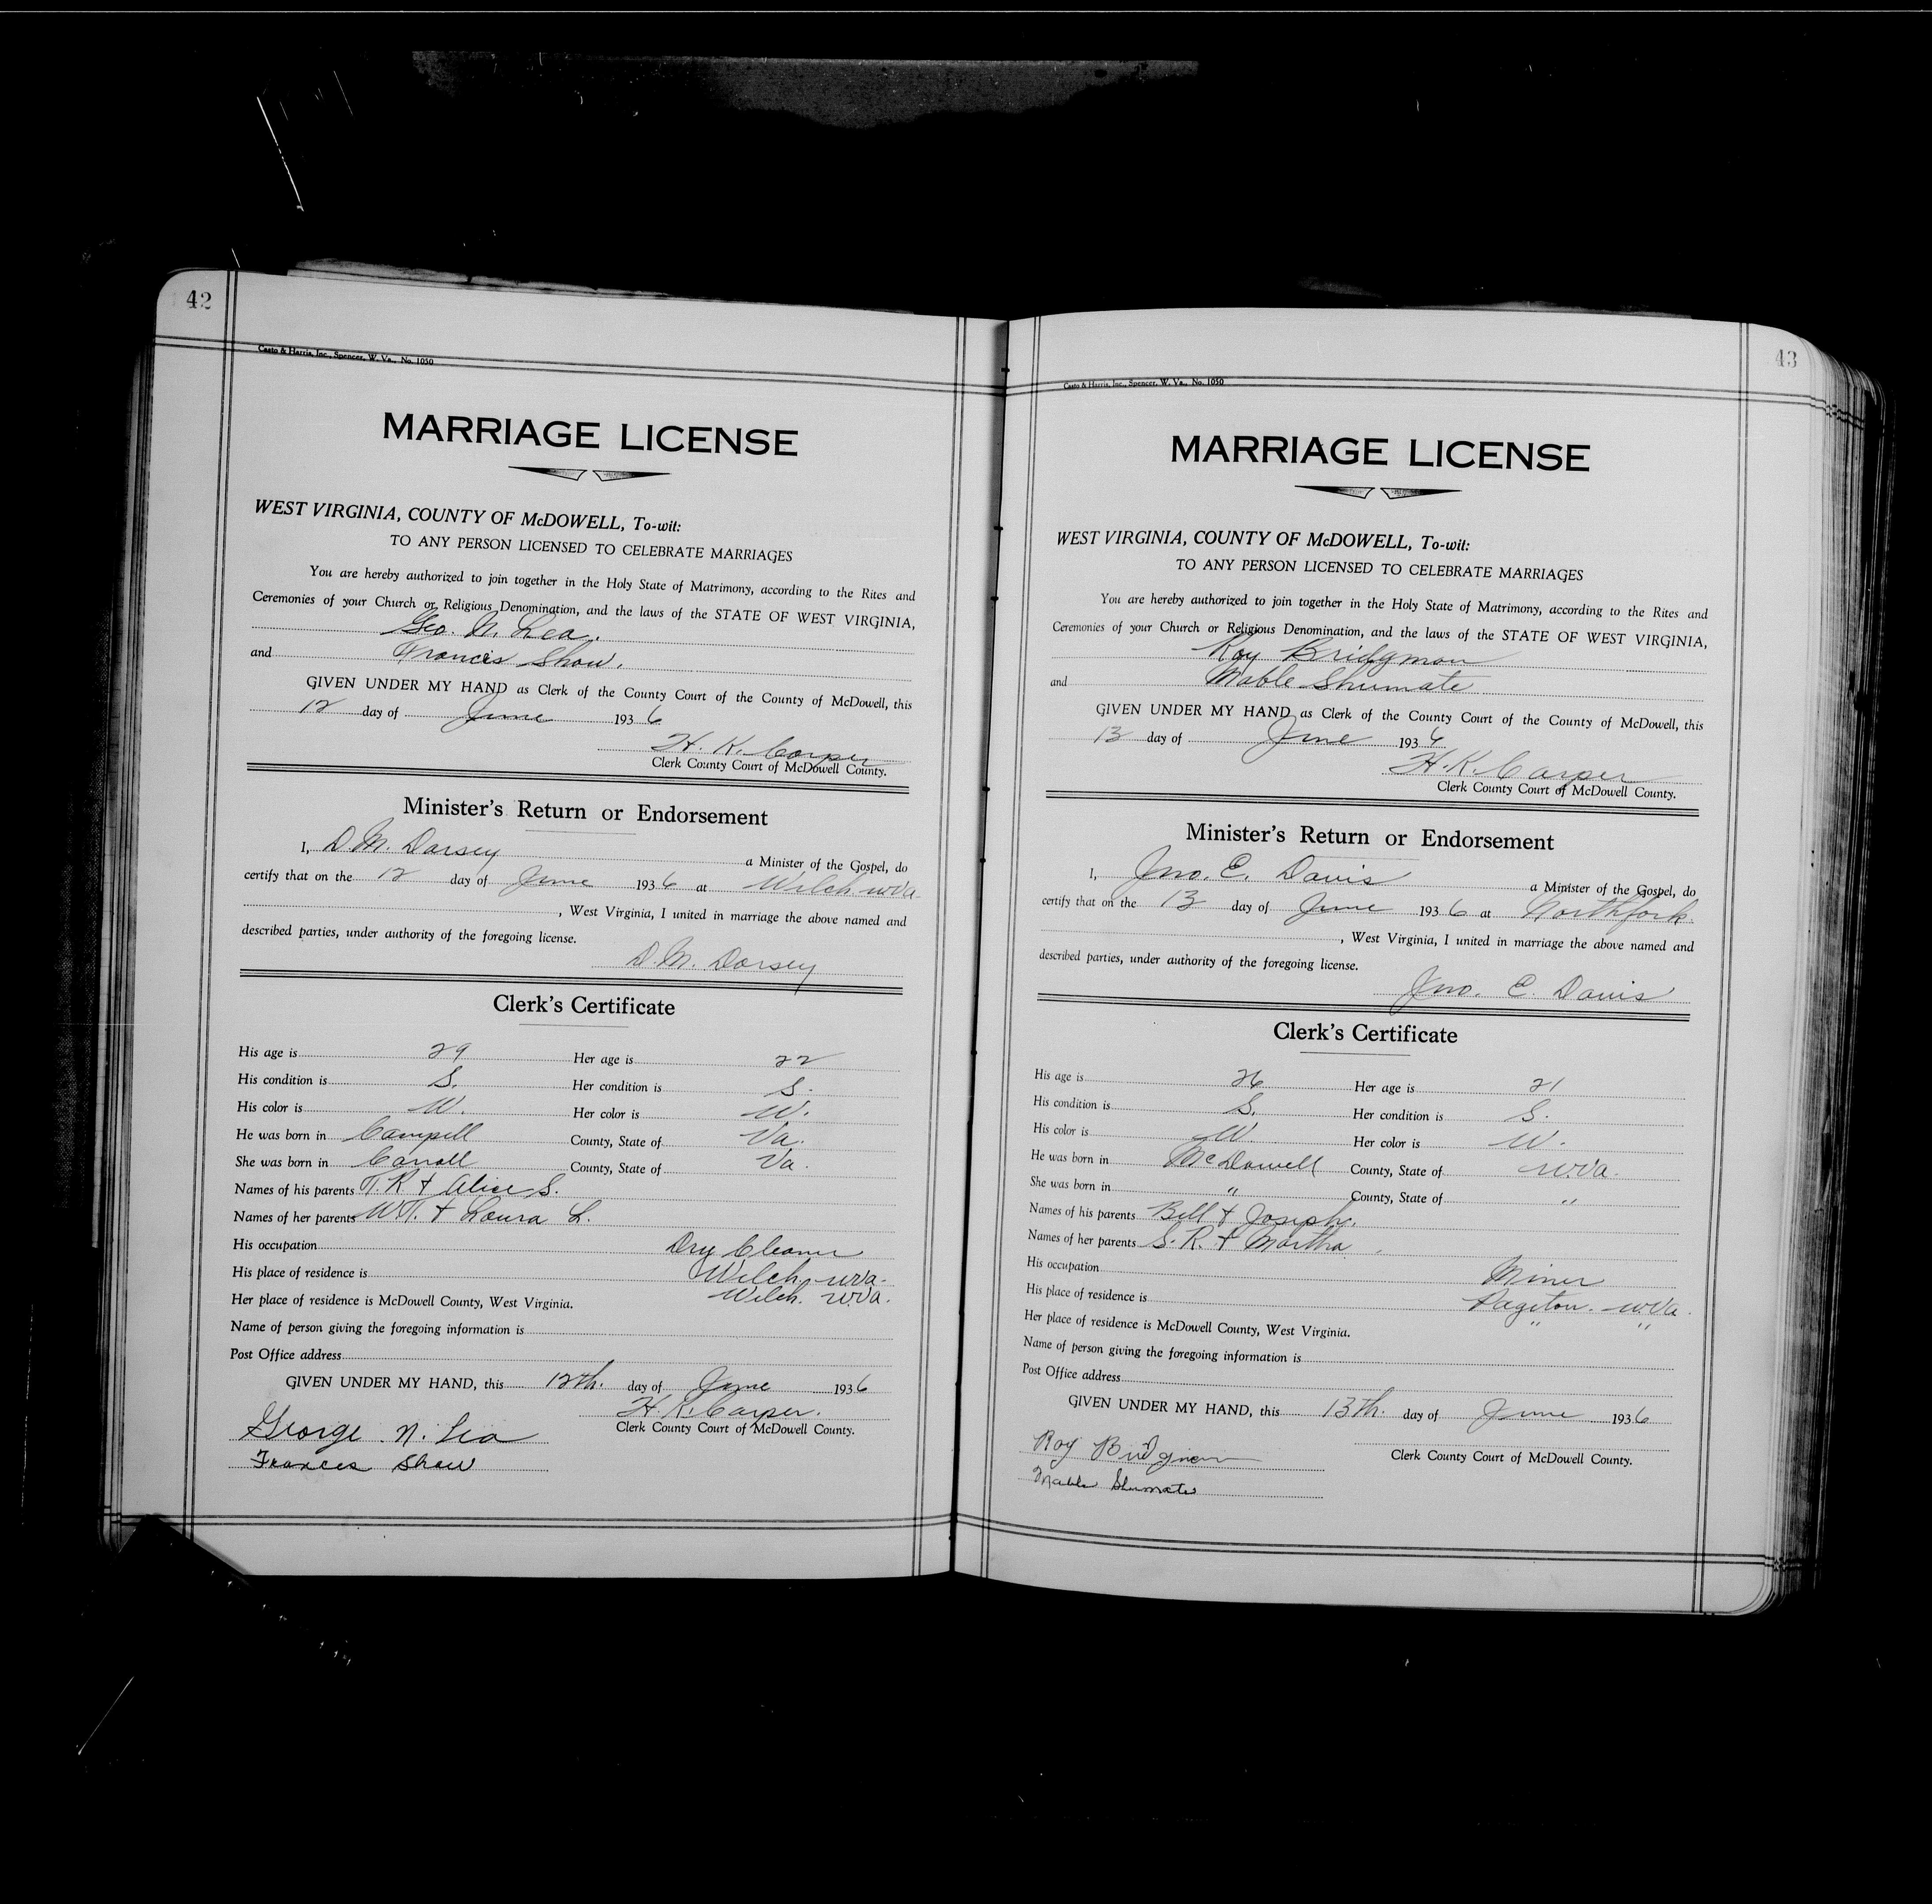 42
Casto & Harris, Inc., Spencer, W. Va., No. 1050
MARRIAGE LICENSE
WEST VIRGINIA, COUNTY OF McDOWELL, To-wit:
TO ANY PERSON LICENSED TO CELEBRATE MARRIAGES
You are hereby authorized to join together in the Holy State of Matrimony, according to the Rites and
Ceremonies of your Church or Religious Denomination, and the laws of the STATE OF WEST VIRGINIA,
Geo. N. Lea.
and Francis Shaw.
GIVEN UNDER MY HAND as Clerk of the County Court of the County of McDowell, this
12 day of June 1936
H. K. Carper
Clerk County Court of McDowell County.
Minister's Return or Endorsement
I, D.M. Dorsey a Minister of the Gospel, do
certify that on the 12 day of June 1936 at Welch W.Va
, West Virginia, I united in marriage the above named and
described parties, under authority of the foregoing license.
D.M. Dorsey
Clerk's Certificate
His age is 29 Her age is 22
His condition is S. Her condition is S.
His color is W. Her color is W.
He was born in Campell County, State of Va.
She was born in Carroll County, State of Va.
Names of his parents T.R & Alice S.
Names of her parents W.T. & Laura L.
His occupation Dry Cleaner
His place of residence is Welch. W.Va.
Her place of residence is McDowell County, West Virginia. Welch. W.Va.
Name of person giving the foregoing information is
Post Office address
GIVEN UNDER MY HAND, this 12th. day of June 1936
H. K. Carper.
Clerk County Court of McDowell County.
George N. Lea
Frances Shaw
43
Casto & Harris, Inc., Spencer, W. Va., No. 1050
MARRIAGE LICENSE
WEST VIRGINIA, COUNTY OF McDOWELL, To-wit:
TO ANY PERSON LICENSED TO CELEBRATE MARRIAGES
You are hereby authorized to join together in the Holy State of Matrimony, according to the Rites and
Ceremonies of your Church or Religious Denomination, and the laws of the STATE OF WEST VIRGINIA,
Roy Bridgman
and Mable Shumate
GIVEN UNDER MY HAND as Clerk of the County Court of the County of McDowell, this
13 day of June 1936
H. K. Carper
Clerk County Court of McDowell County.
Minister's Return or Endorsement
I, Jno. E. Davis a Minister of the Gospel, do
certify that on the 13 day of June 1936 at Northfork.
, West Virginia, I united in marriage the above named and
described parties, under authority of the foregoing license.
Jno. E. Davis
Clerk's Certificate
His age is 26 Her age is 21
His condition is S. Her condition is S.
His color is W. Her color is W.
He was born in McDowell County, State of W.Va.
She was born in " County, State of "
Names of his parents Bill & Joseph.
Names of her parents S. R. & Martha
His occupation Miner
His place of residence is Pageton. W.Va.
Her place of residence is McDowell County, West Virginia. " "
Name of person giving the foregoing information is
Post Office address
GIVEN UNDER MY HAND, this 13th. day of June 1936
Clerk County Court of McDowell County.
Roy Bridgman
Mable Shumate